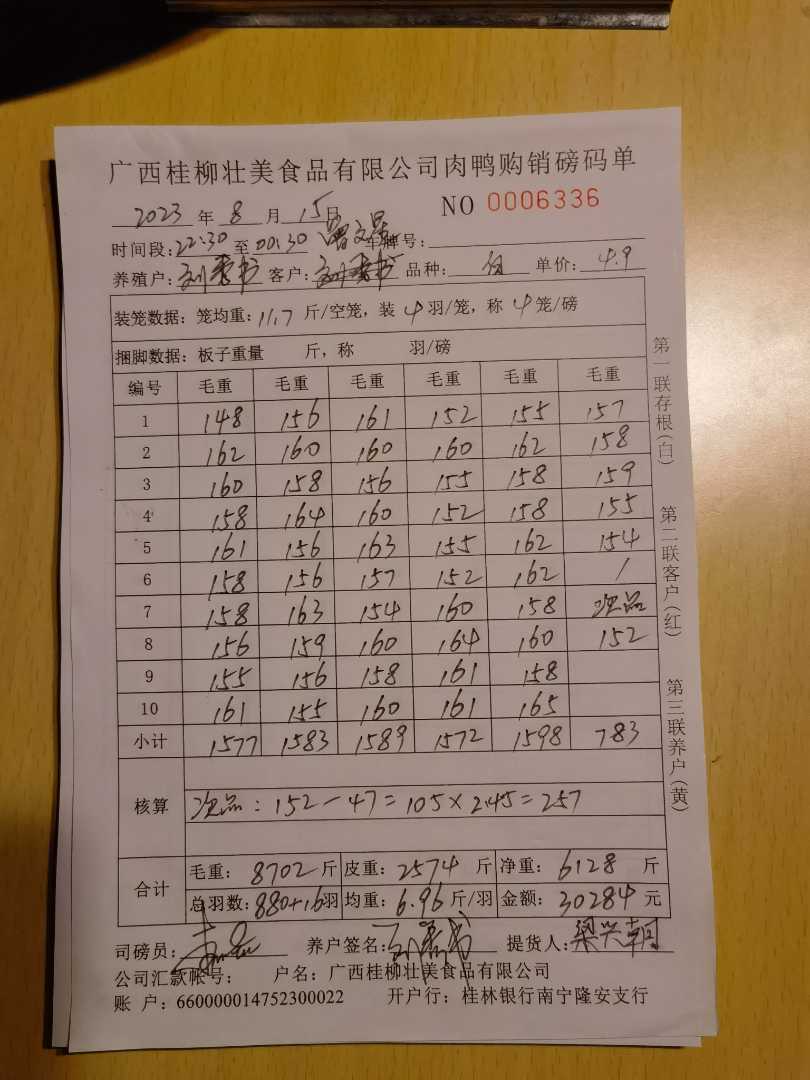 广西桂柳壮美食品有限公司肉鸭购销磅码单
2023 年 8 月 15 日 NO 0006336
时间段: 22:30 至 00:30 车牌号:
养殖户: 客户: 品种: 白 单价: 4.9
装笼数据: 笼均重: 11.7 斤/空笼, 装 4 羽/笼, 称 4 笼/磅
捆脚数据: 板子重量 斤, 称 羽/磅
编号 毛重 毛重 毛重 毛重 毛重 毛重
1 148 156 161 152 155 157
2 162 160 160 160 162 158
3 160 158 156 155 158 159
4 158 164 160 152 158 155
5 161 156 163 155 162 154
6 158 156 157 152 162 /
7 158 163 154 160 158 次品
8 156 159 160 164 160 152
9 155 156 158 161 158
10 161 155 160 161 165
小计 1577 1583 1589 1572 1598 783
核算 次品: 152-47=105×2.45=257
合计 毛重: 8702 斤 皮重: 2574 斤 净重: 6128 斤
总羽数: 880+16 羽 均重: 6.96 斤/羽 金额: 30284 元
司磅员: 养户签名: 提货人: 梁兴朝
公司汇款帐号: 户名: 广西桂柳壮美食品有限公司
账 户: 660000014752300022 开户行: 桂林银行南宁隆安支行
第一联存根(白)
第二联客户(红)
第三联养户(黄)